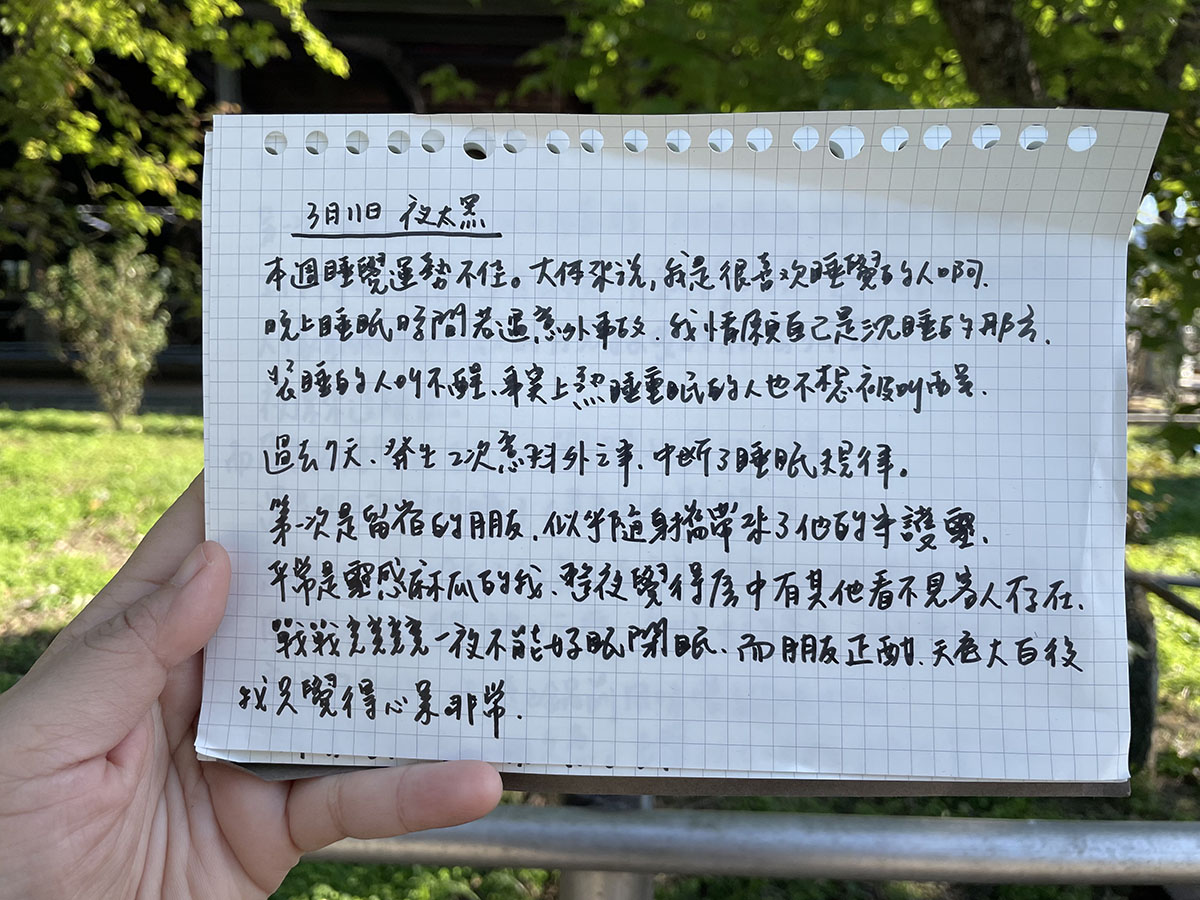 3月11日 夜太黑
本週睡覺運勢不佳。大体来说,我是很喜欢睡覺的人啊.
晚上睡眠時間若遇意外事故.我情願自己是沈睡的那方.
装睡的人叫不醒、事実上熟睡重眠的人也不想被叫醒.
過去7天、發生2次意料外之事.中断了睡眠規律。
第一次是留宿的朋友.似乎隨身攜帶來了他的守護靈.
平常是靈感麻瓜的我、整夜覺得房中有其他看不見的人存在.
戰戰兢兢一夜不能好眠閉眠、而朋友正酣.天色大白後
我只覺得心累非常.